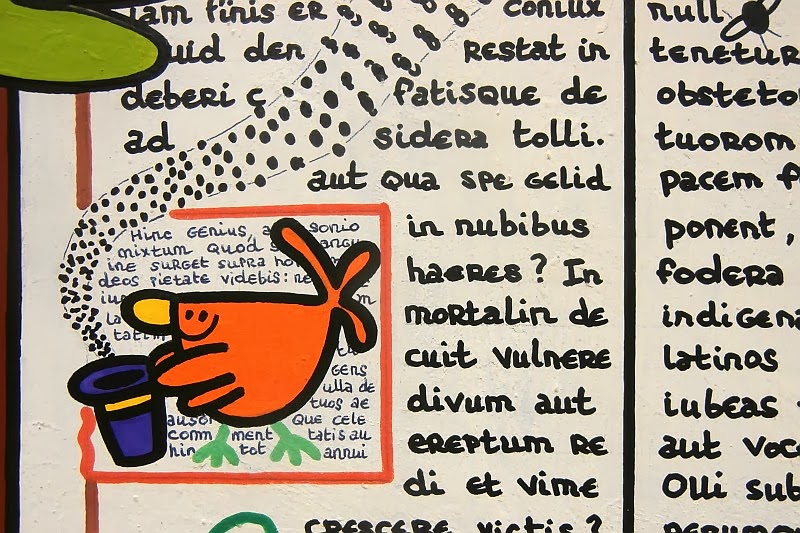 iam finis ER coniux
uid den RESTAT in
deberi ç fatisque de
ad sidera tolli.
aut qua spe gelid
in nubibus
haeres? In
mortalin de
cuit vulnere
divum aut
ereptum re
di et vime
crescere victis?
Hinc genius, a sonio
mixtum quod s angu
ine surget supra ho
deos pietate videbis: ne
la
tati
gens
ulla de
tuos ae
ausor que cele
comm ment tatis au
hin tot annui
null
tenetur
obsteto
tuorom
pacem f
ponent,
fodera
indigena
latinos
iubeas
aut voca
Olli sub